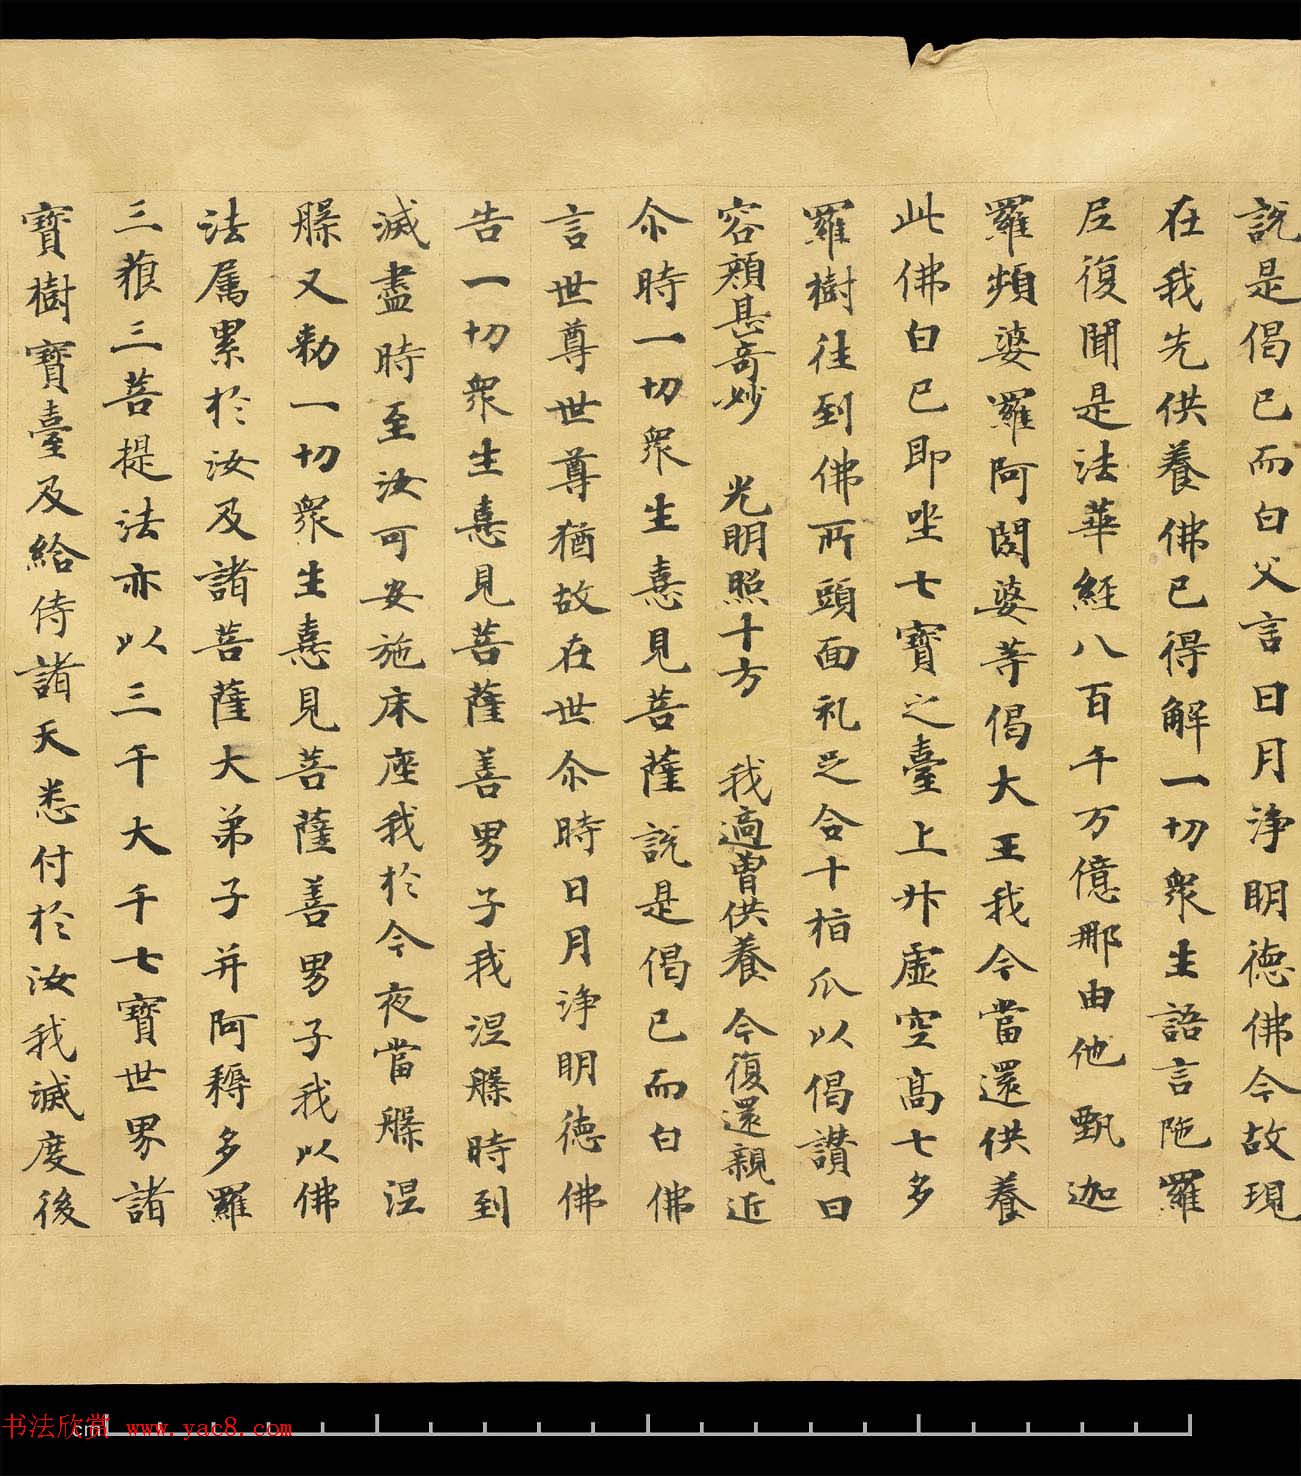 說是偈已而白父言日月淨明德佛今故現
在我先供養佛已得解一切衆生語言陁羅
尼復聞是法華經八百千万億那由他甄迦
羅頻婆羅阿閦婆等偈大王我今當還供養
此佛白已即坐七寶之臺上昇虛空高七多
羅樹往到佛所頭面礼足合十指爪以偈讃曰
容顏甚奇妙 光明照十方 我適曽供養 今復還親近
尒時一切衆生憙見菩薩說是偈已而白佛
言世尊世尊猶故在世尒時日月淨明德佛
告一切衆生憙見菩薩善男子我涅槃時到
滅盡時至汝可安施床座我於今夜當槃涅
槃又勑一切衆生憙見菩薩善男子我以佛
法属累於汝及諸菩薩大弟子并阿耨多羅
三藐三菩提法亦以三千大千七寶世界諸
寶樹寶臺及給侍諸天悉付於汝我滅度後
书法欣赏 www.yac8.com
cm